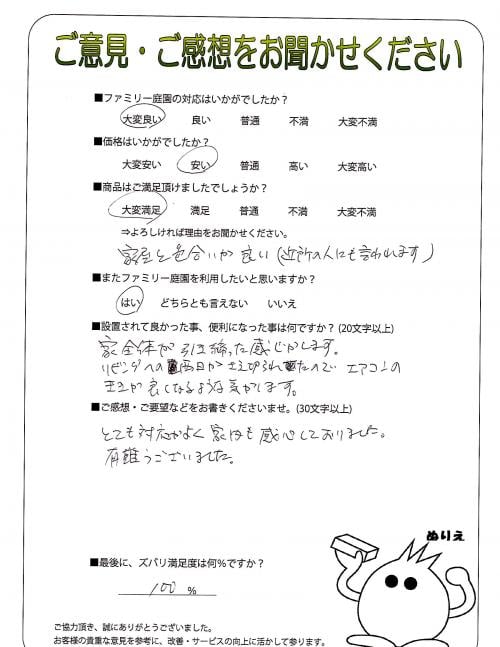 ご意見・ご感想をお聞かせください
■ファミリー庭園の対応はいかがでしたか？
大変良い 良い 普通 不満 大変不満
■価格はいかがでしたか？
大変安い 安い 普通 高い 大変高い
■商品はご満足頂けましたでしょうか？
大変満足 満足 普通 不満 大変不満
⇒よろしければ理由をお聞かせください。
家屋と色合いが良い(近所の人にも言われます)
■またファミリー庭園を利用したいと思いますか？
はい どちらとも言えない いいえ
■設置されて良かった事、便利になった事は何ですか？(20文字以上)
家全体が引き締った感じがします。
リビングへの西日がさえぎられたので エアコンの
ききが良くなるような気がします。
■ご感想・ご要望などをお書きくださいませ。(30文字以上)
とても対応がよく 家内も感心しておりました。
有難うございました。
ぬりえ
■最後に、ズバリ満足度は何％ですか？
100 %
ご協力頂き、誠にありがとうございました。
お客様の貴重な意見を参考に、改善・サービスの向上に活かして参ります。